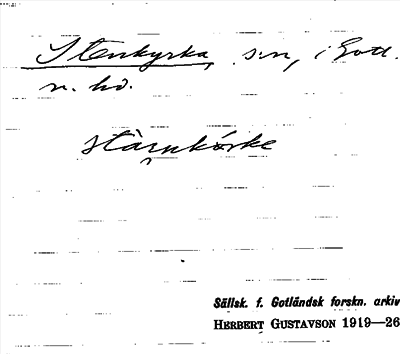 Stenkyrka, sn, i Gotl.
n. hd.
stàrnkórke
Sällsk. f. Gotländsk forskn. arkiv
HERBERT GUSTAVSON 1919—26